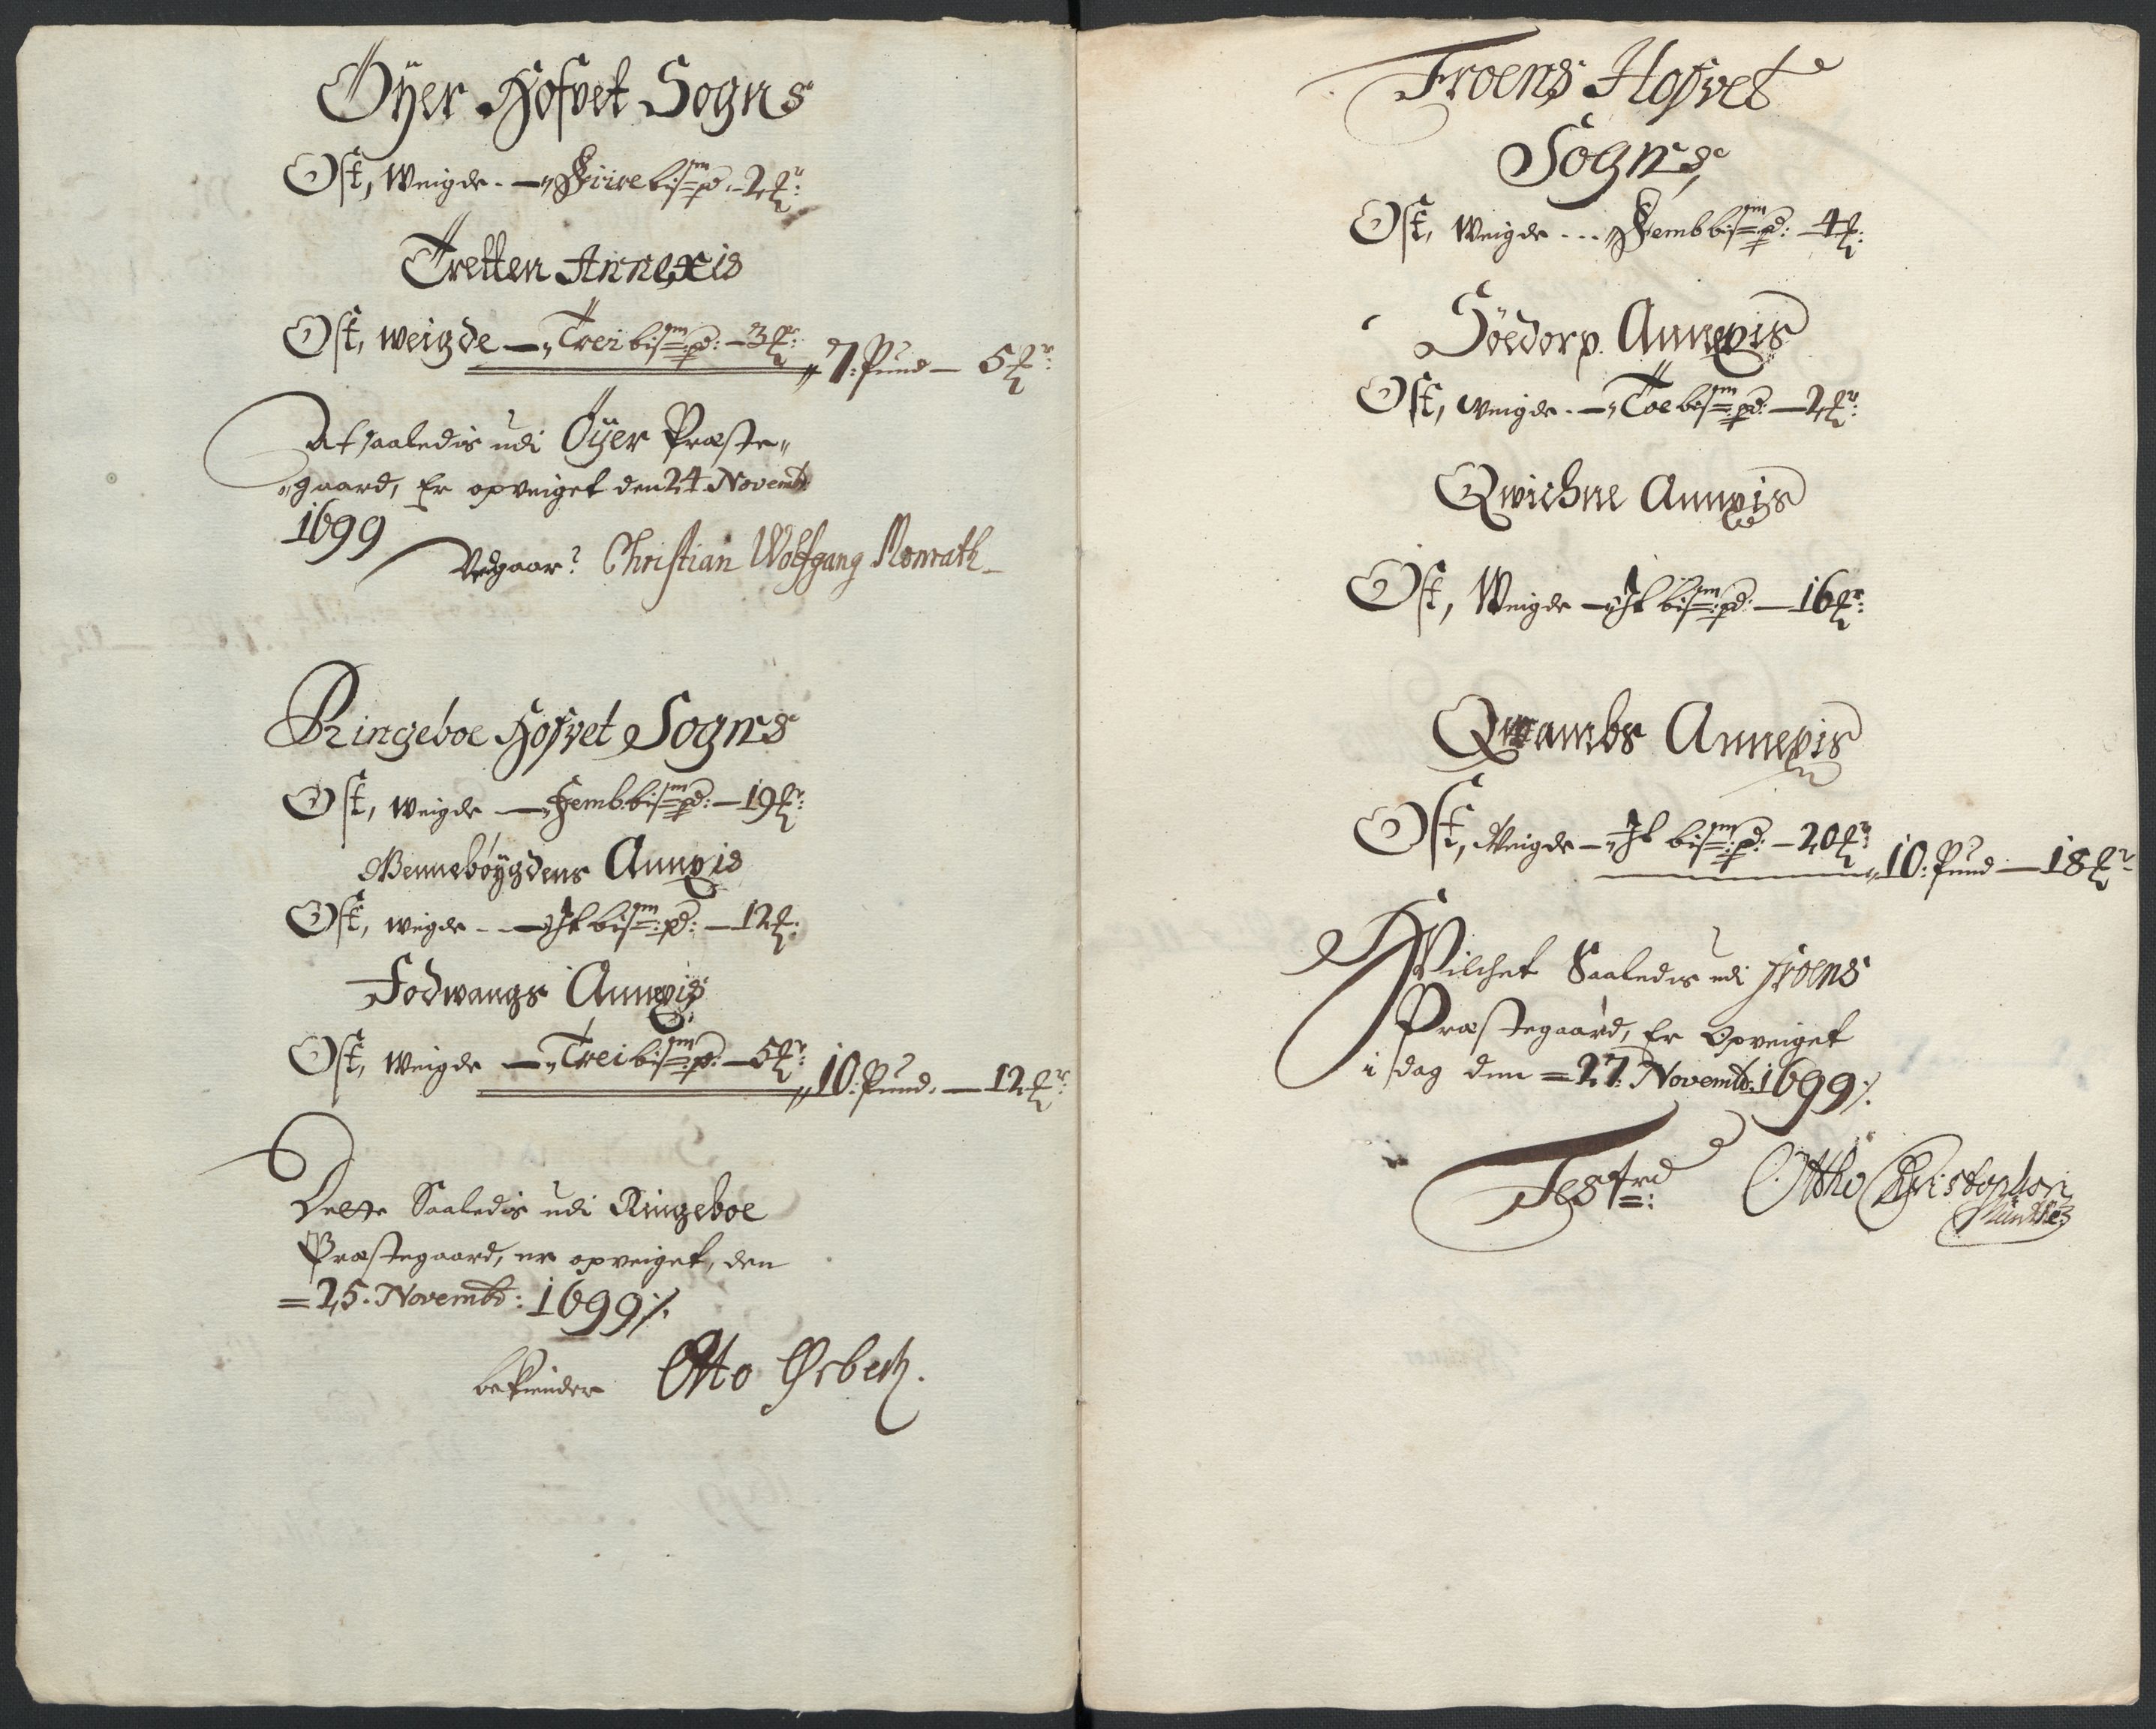 Öÿer Hofvet Sogns
Ost, Weigde - — „ Fiire bis=m: pd: - 2 ℔r:
Tretten Annexis
Ost, weigde — „ Trei bis=m: pd: — 3 ℔r:
„ 7: Pund — 5 ℔r:
At saaledis udi Öÿer Præste„
„gaard, Er opveiget den 24 Novemb:
1699
Vedgaar? Christian Wolfgang Monrath
Ringeboe Hofvet Sogns
Ost, weigde — „ Femb bis=m: pd: — 19 ℔r:
Vennebøÿgdens Annexis
Ost, weigde - — „ It bis=m: pd: — 12 ℔:
Fodwangs Annexis
Ost, weigde — „ Trei bis=m: pd: — 5 ℔r:
„ 10: Pund. — 12 ℔r:
Dette Saaledis udi Ringeboe
Præstegaard, er opveiget, den
= 25. Novembr: 1699 ⁒
bekiender Otto Ørbech.
Froens Hofvet
Sogns,
Ost, weigde - - - „ Femb bis=m: pd: — 4 ℔:
Söedorp Annexis
Ost, weigde. — „ Toe bis=m: pd: — 2 ℔r:
Qwichne Annexis
Ost, Weigde — „ It bis=m: pd: — 16 ℔r:
Qwambs Annexis
Ost, Weigde — „ It bis=m: pd: — 20 ℔r:
„ 10: Pund — 18 ℔r
Hvilchet Saaledis udi Froens
Præstegaard, Er Opveiget
i dag den = 27. Novemb: 1699 ⁒
Test=rd: Ottho Christophori